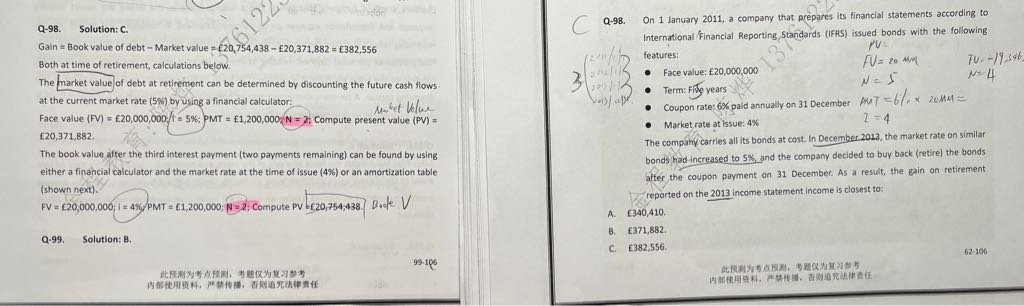 Q-98. Solution: C.
Gain = Book value of debt – Market value = £20,754,438 – £20,371,882 = £382,556
Both at time of retirement, calculations below.
The market value of debt at retirement can be determined by discounting the future cash flows
at the current market rate (5%) by using a financial calculator:
Market Value
Face value (FV) = £20,000,000; i = 5%; PMT = £1,200,000; N = 2; Compute present value (PV) =
£20,371,882.
The book value after the third interest payment (two payments remaining) can be found by using
either a financial calculator and the market rate at the time of issue (4%) or an amortization table
(shown next).
FV = £20,000,000; i = 4%; PMT = £1,200,000; N = 2; Compute PV = £20,754,438. Book V
Q-99. Solution: B.
99-106
此预测为考点预测，考题仅为复习参考
内部使用资料，严禁传播，否则追究法律责任
C
Q-98. On 1 January 2011, a company that prepares its financial statements according to
International Financial Reporting Standards (IFRS) issued bonds with the following
features:
PV=
Face value: £20,000,000 FV= 20 MM
Term: Five years N = 5
N= 4
3
Coupon rate: 6% paid annually on 31 December PMT = 6% × 20MM =
Market rate at issue: 4% = 4
The company carries all its bonds at cost. In December 2013, the market rate on similar
bonds had increased to 5%, and the company decided to buy back (retire) the bonds
after the coupon payment on 31 December. As a result, the gain on retirement
reported on the 2013 income statement income is closest to:
A. £340,410.
B. £371,882.
C. £382,556.
62-106
此预测为考点预测，考题仅为复习参考
内部使用资料，严禁传播，否则追究法律责任